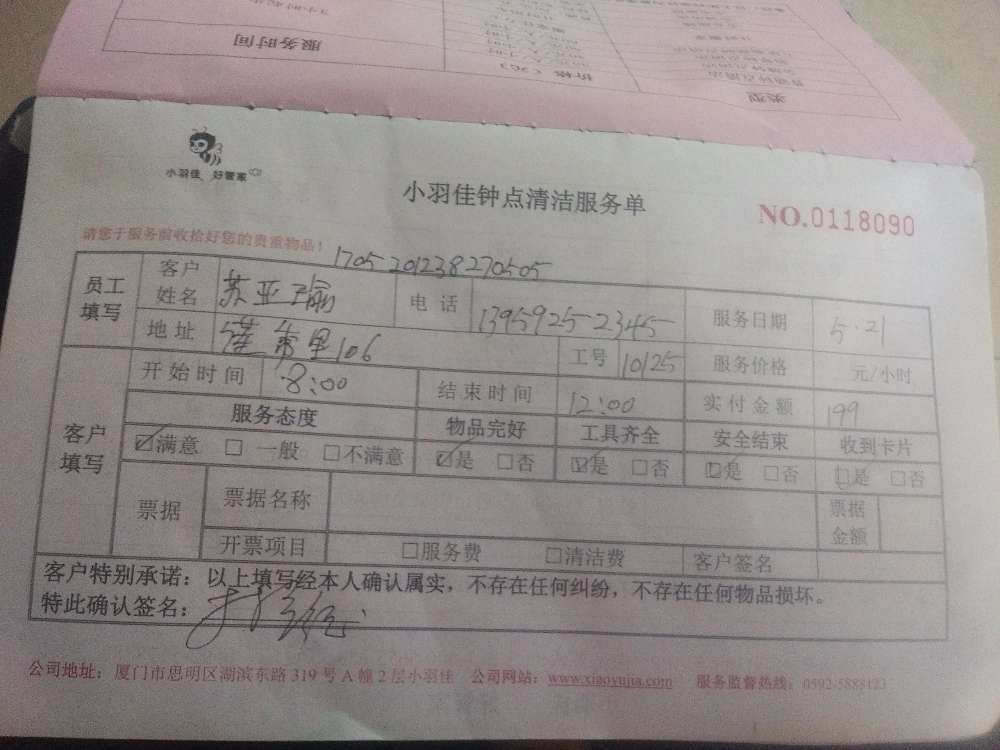 服务时间
价格（元）
类型
小羽佳 好管家
小羽佳钟点清洁服务单
NO.0118090
请您于服务前收拾好您的贵重物品！
1705201238270505
员工填写 客户姓名 苏亚瑜 电话 13959252345 服务日期 5.21
地址 莲希里106 工号 10125 服务价格 元/小时
客户填写 开始时间 8:00 结束时间 12:00 实付金额 199
服务态度 物品完好 工具齐全 安全结束 收到卡片
☑满意 □一般 □不满意 ☑是 □否 ☑是 □否 ☑是 □否 ☑是 □否
票据 票据名称 票据金额
开票项目 □服务费 □清洁费 客户签名
客户特别承诺：以上填写经本人确认属实，不存在任何纠纷，不存在任何物品损坏。
特此确认签名：
公司地址：厦门市思明区湖滨东路319号A幢2层小羽佳 公司网站：www.xiaoyujia.com 服务监督热线：0592-5888123